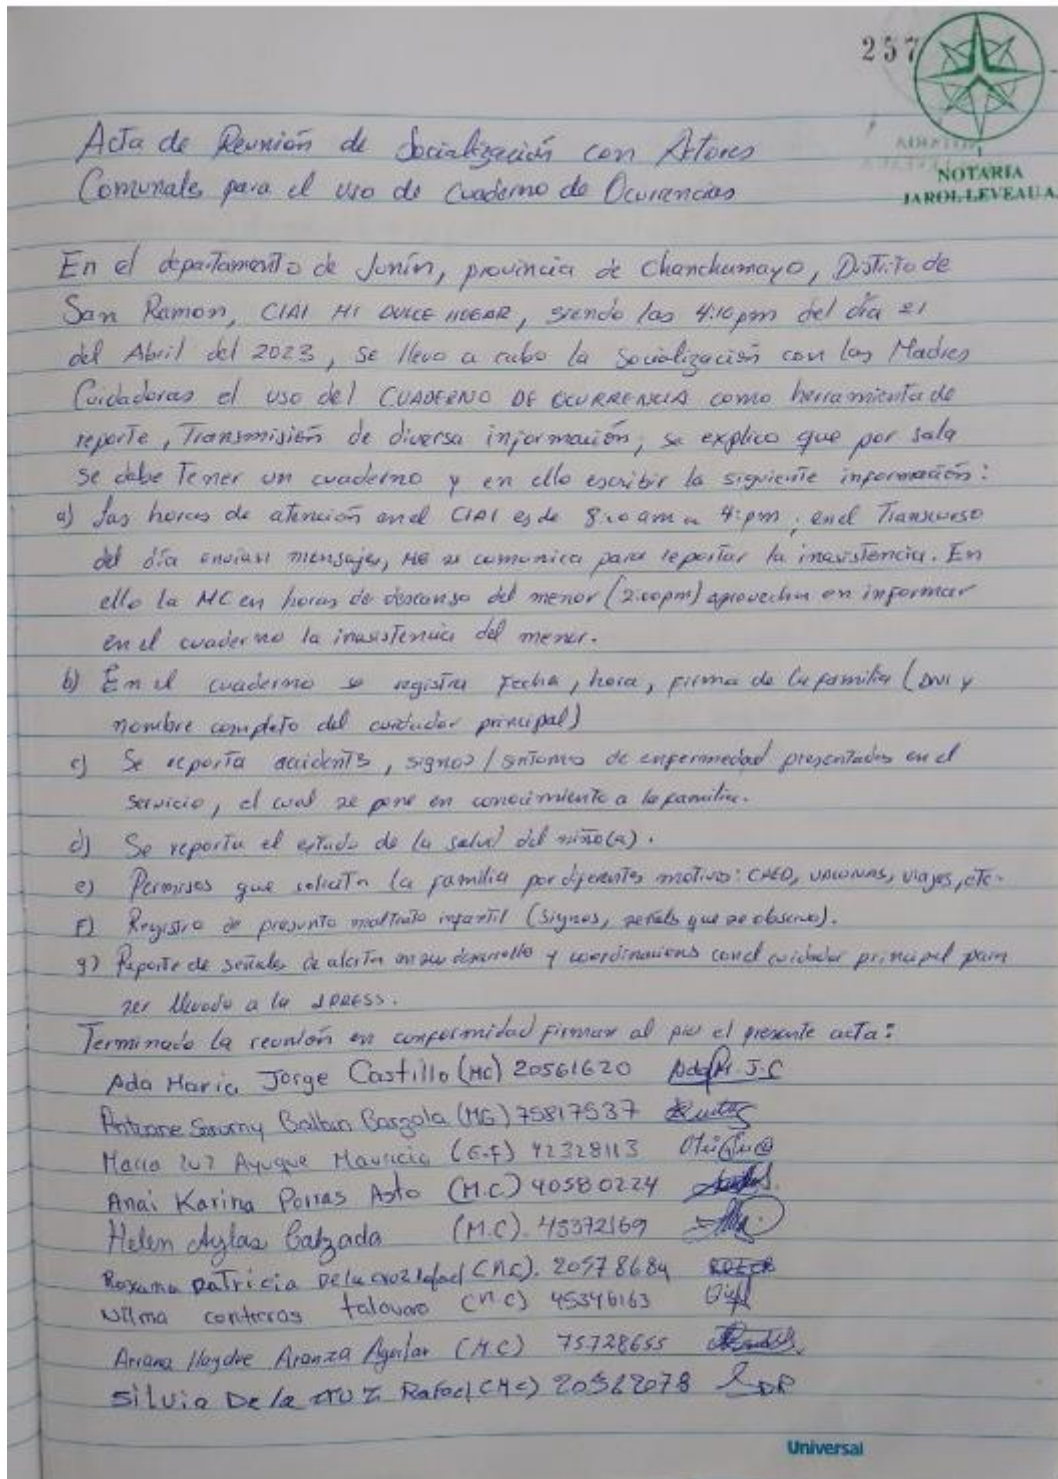 257
NOTARIA
JAROL LEVEAU A.
Acta de Reunión de Socialización con Actores
Comunales para el uso de cuaderno de Ocurrencias
En el departamento de Junín, provincia de Chanchamayo, Distrito de
San Ramon, CIAI MI DULCE HOGAR, siendo las 4:10 pm del día 21
del Abril del 2023, se llevo a cabo la Socialización con las Madres
Cuidadoras el uso del CUADERNO DE OCURRENCIA como herramienta de
reporte, Transmisión de diversa información, se explico que por sala
se debe Tener un cuaderno y en ello escribir la siguiente información:
a) Las horas de atención en el CIAI es de 8:00 am a 4: pm, en el Transcurso
del día envían mensajes, se comunica para reportar la inasistencia. En
ello la MC en horas de descanso del menor (2:00pm) aprovecha en informar
en el cuaderno la inasistencia del menor.
b) En el cuaderno se registra Fecha, hora, firma de la familia (DNI y
nombre completo del cuidador principal)
c) Se reporta accidents, signos / sintomas de enfermedad presentados en el
servicio, el cual se pone en conocimiento a la familia.
d) Se reporta el estado de la salud del niño(a).
e) Permisos que solicita la familia por diferentes motivos: CRED, VACUNAS, viajes, etc.
F) Registro de presunto maltrato infantil (signos, señales que se observe).
g) Reporte de señales de alerta en su desarrollo y coordinacions con el cuidador principal para
ser llevado a la IPRESS.
Terminado la reunión en conformidad firman al pie el presente acta:
Ada Maria Jorge Castillo (MC) 20561620
Balbin (MG) 75817537
Maria Luz Ayuque Mauricio (G.F) 42328113
Anai Karina Porras Asto (M.C.) 40580224
Helen Aylas Calzada (M.C). 45372169
Roxana Patricia De la cruz (M.C). 20578684
Wilma contreras talavano (M.C) 45346163
Ariana Haydee Aranza Aguilar (M.C) 75728655
Silvia De la CRUZ Rafael (Mc) 20522078
Universal